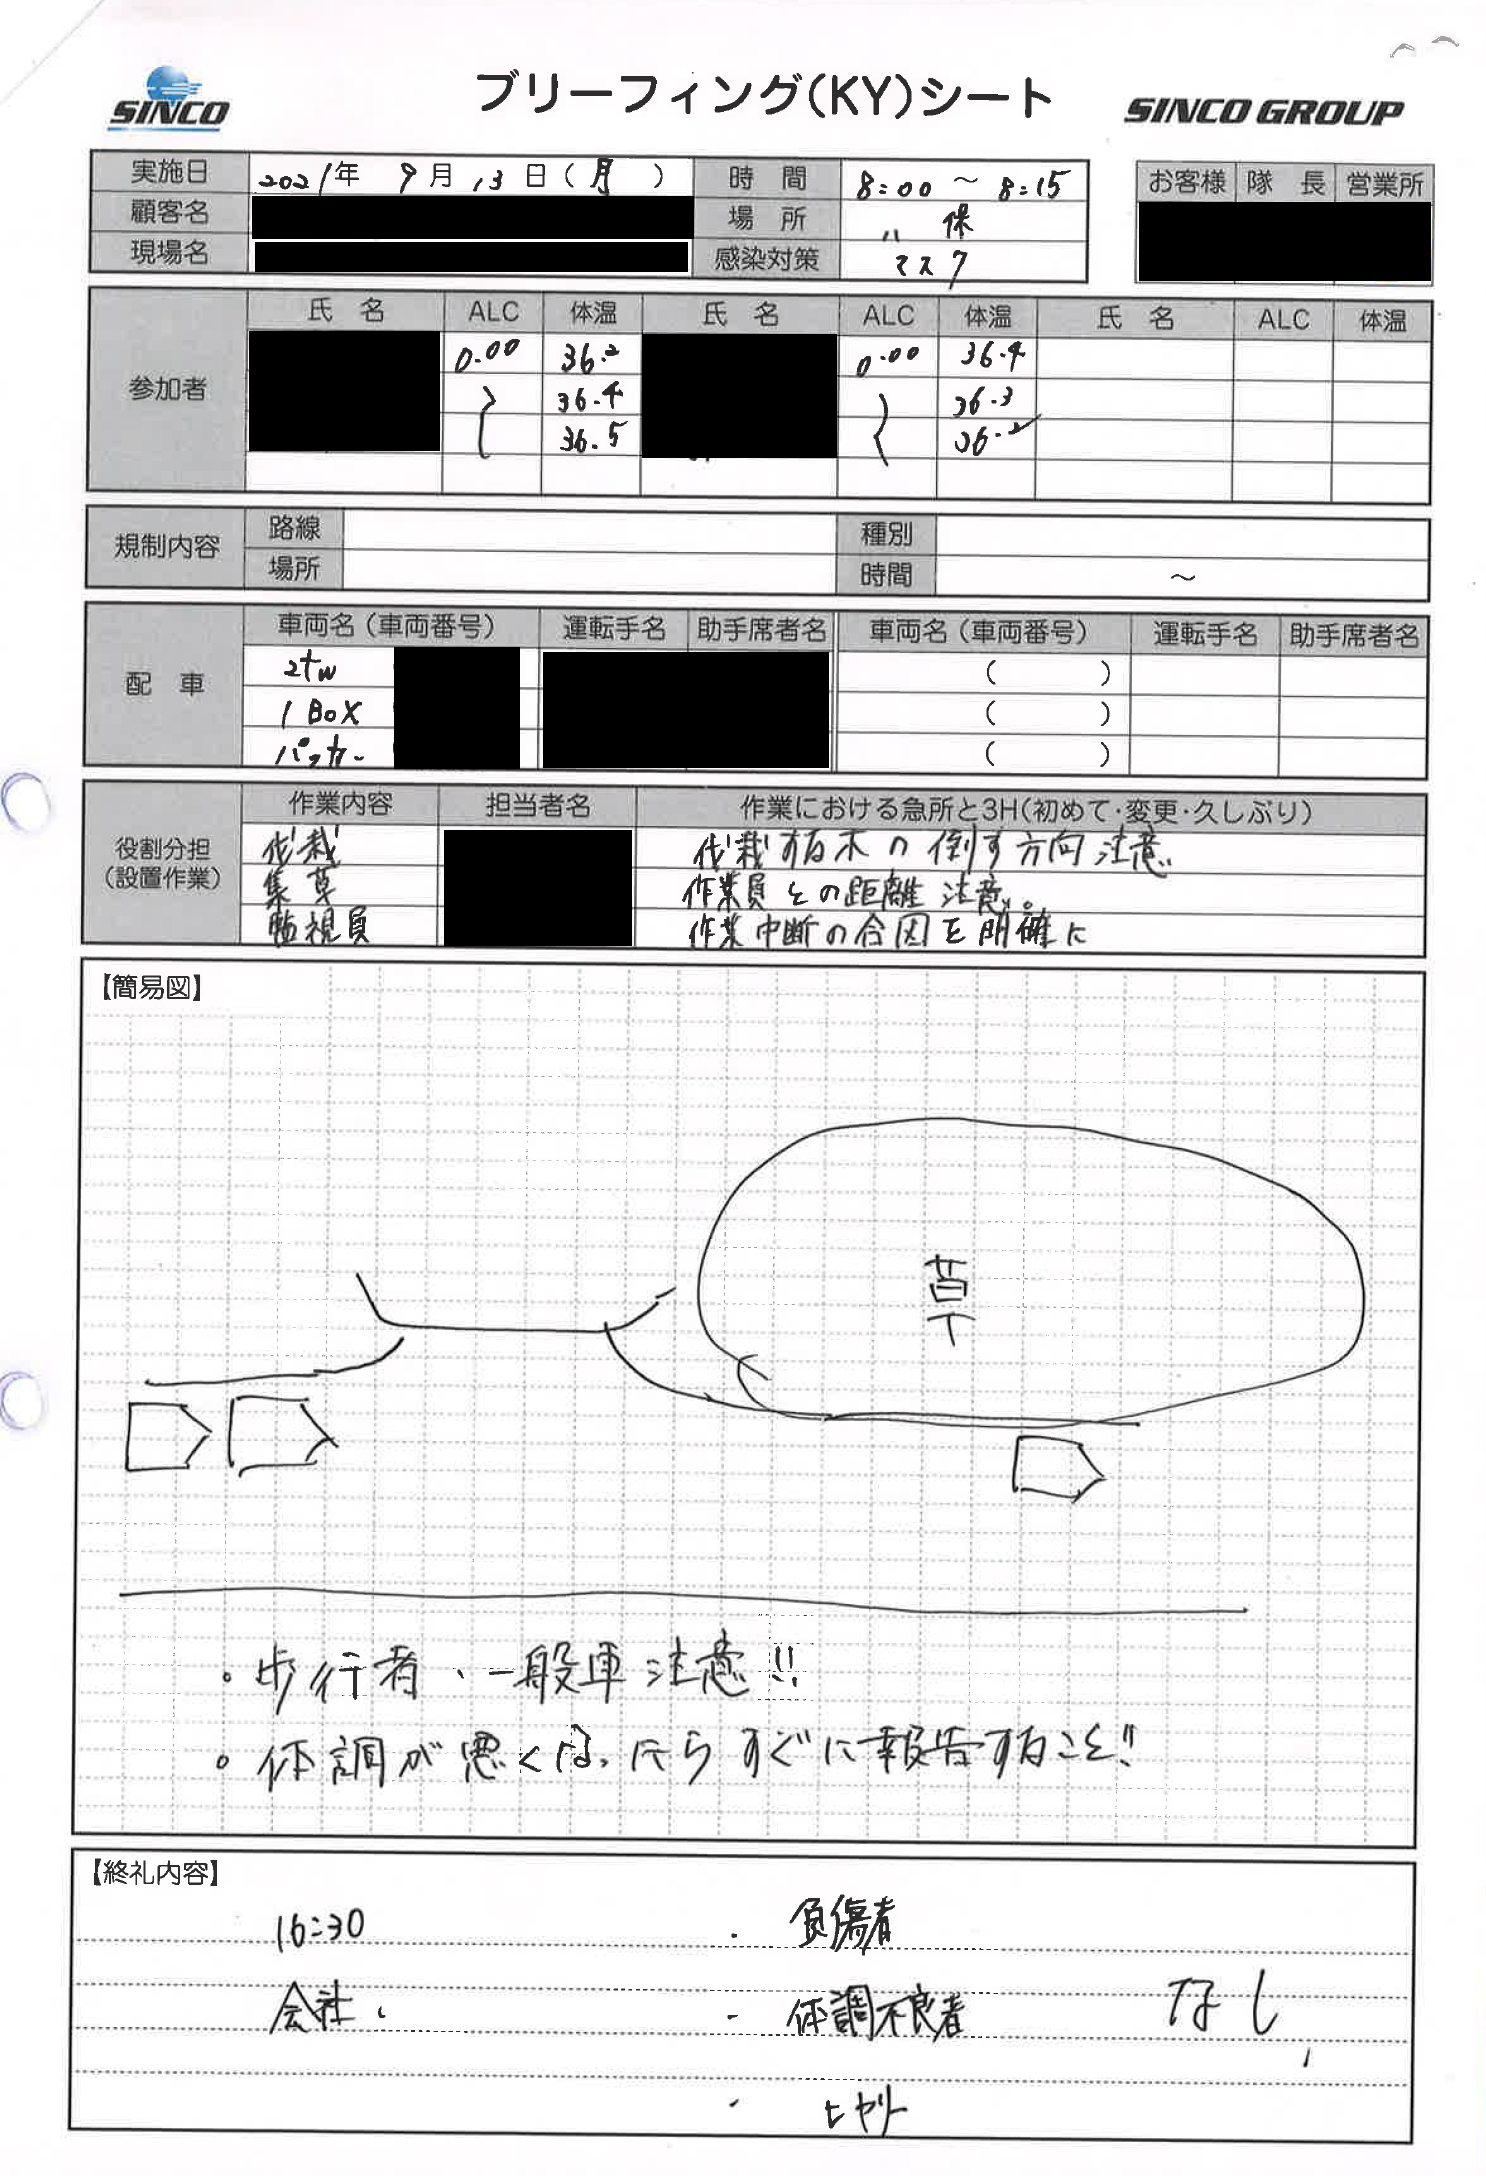 SINCO
ブリーフィング(KY)シート
SINCO GROUP
実施日 2021年 9月 13日(月 ) 時 間 8:00 ~ 8:15
お客様 隊 長 営業所
顧客名 場 所 八保
現場名 感染対策 マスク
参加者
氏 名 ALC 体温 氏 名 ALC 体温 氏 名 ALC 体温
0.00 36.2 0.00 36.4
36.4 36.3
36.5 36.2
規制内容 路線 種別
場所 時間 ~
配 車
車両名(車両番号) 運転手名 助手席者名 車両名(車両番号) 運転手名 助手席者名
2tw ( )
1 BOX ( )
パッカー ( )
役割分担
(設置作業)
作業内容 担当者名 作業における急所と3H(初めて・変更・久しぶり)
伐栽 伐栽する木の倒す方向注意
集草 作業員との距離注意。
監視員 作業中断の合図を明確に
【簡易図】
草
・歩行者、一般車注意!!
・体調が悪くなったらすぐに報告すること!!
【終礼内容】
16:30 ・ 負傷者
会社、 ・ 体調不良者 なし
・ ヒヤリ